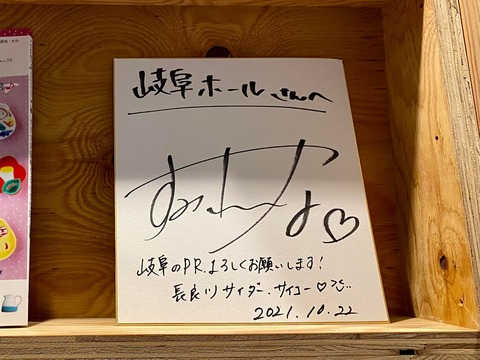 岐阜ホールさんへ
岐阜のPR、よろしくお願いします!
長良川サイダー、サイコー♡
2021.10.22